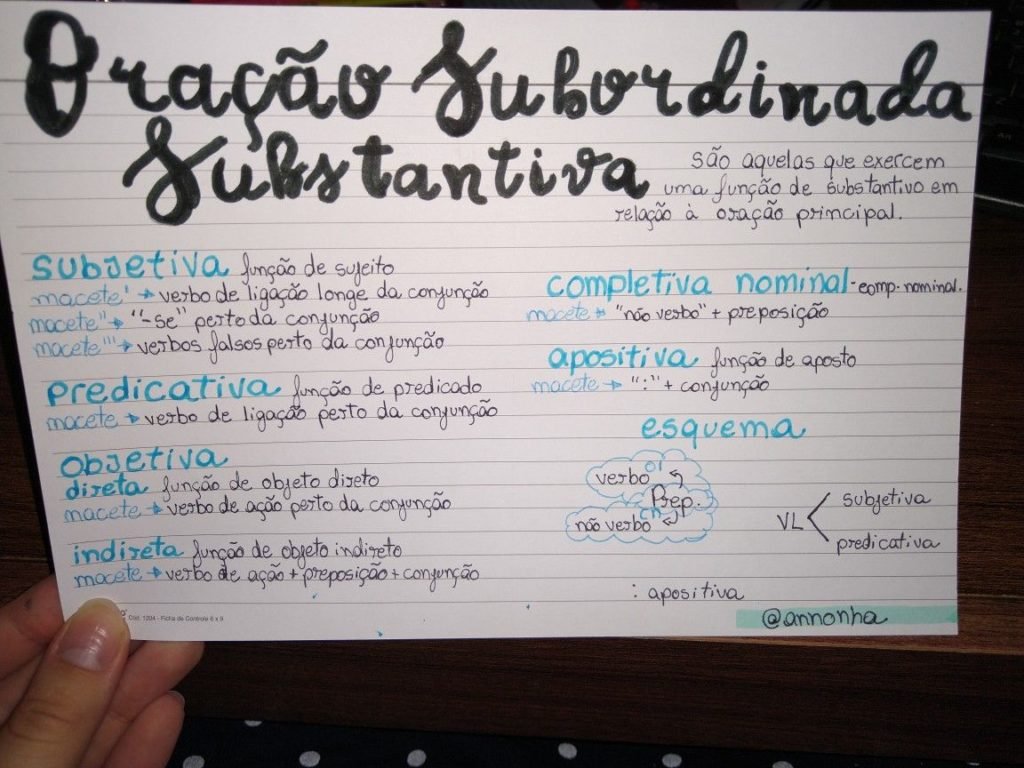 Oração Subordinada
Substantiva
são aquelas que exercem
uma função de substantivo em
relação à oração principal.
subjetiva função de sujeito
macete' → verbo de ligação longe da conjunção
macete" → "-se" perto da conjunção
macete"' → verbos falsos perto da conjunção
predicativa função de predicado
macete → verbo de ligação perto da conjunção
objetiva
direta função de objeto direto
macete → verbo de ação perto da conjunção
indireta função de objeto indireto
macete → verbo de ação + preposição + conjunção
completiva nominal - comp. nominal.
macete → "não verbo" + preposição
apositiva função de aposto
macete → ":" + conjunção
esquema
verbo OI
Prep.
não verbo CN
VL < subjetiva
predicativa
: apositiva
@annonha
Cód. 1204 - Ficha de Controle 6 x 9